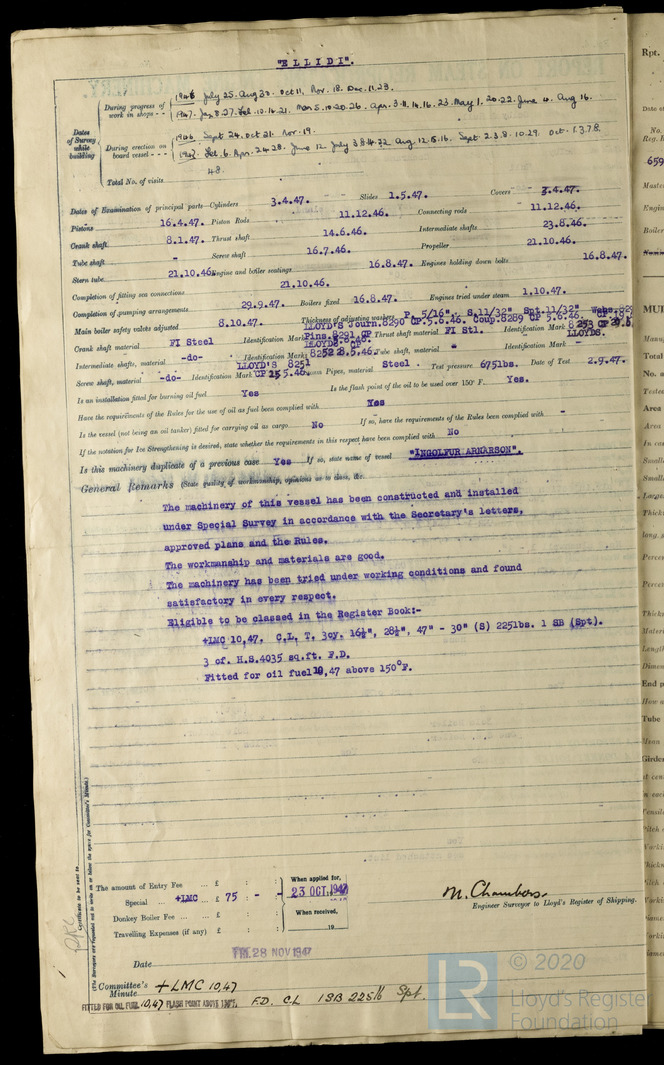 "ELLIDI".
Dates of Survey while building
During progress of work in shops - -
1946 July 25. Aug 30. Oct 11. Nov. 18. Dec. 11.23.
1947. Jan 8.27. Feb. 10.14.21. Mar 5.10.20.26. Apr. 3.11.14.16.23. May 1. 20.22. June 4. Aug 16.
During erection on board vessel - - -
1946. Sept 24. Oct 21. Nov. 19.
Total No. of visits 48.
Dates of Examination of principal parts—Cylinders 3.4.47. Slides 1.5.47. Covers 3.4.47.
Pistons 16.4.47. Piston Rods 11.12.46. Connecting rods 11.12.46.
Crank shaft 8.1.47. Thrust shaft 14.6.46. Intermediate shafts 23.8.46.
Tube shaft - Screw shaft 16.7.46. Propeller 21.10.46.
Stern tube 21.10.46. Engine and boiler seatings 16.8.47. Engines holding down bolts 16.8.47.
Completion of fitting sea connections 21.10.46.
Completion of pumping arrangements 29.9.47. Boilers fixed 16.8.47. Engines tried under steam 1.10.47.
Main boiler safety valves adjusted 8.10.47. Thickness of adjusting washers P. 5/16". S.11/32" Spt.11/32"
Crank shaft material FI Steel Identification Mark LLOYD'S Journ.8290 CP.5.6.46. Coup.8289 CP 5.6.46. Pins.8291 CP Thrust shaft material FI Stl. Identification Mark LLOYDS.
Intermediate shafts, material -do- Identification Marks LLOYDS CP 8252 23.5.46. Tube shaft, material - Identification Mark -
Screw shaft, material -do- Identification Mark LLOYD'S 8251 CP 25.5.46. Steam Pipes, material Steel. Test pressure 675lbs. Date of Test 2.9.47.
Is an installation fitted for burning oil fuel Yes Is the flash point of the oil to be used over 150° F. Yes.
Have the requirements of the Rules for the use of oil as fuel been complied with Yes
Is the vessel (not being an oil tanker) fitted for carrying oil as cargo No If so, have the requirements of the Rules been complied with -
If the notation for Ice Strengthening is desired, state whether the requirements in this respect have been complied with No
Is this machinery duplicate of a previous case Yes If so, state name of vessel "INGOLFUR ARNARSON".
General Remarks (State quality of workmanship, opinions as to class, &c.
The machinery of this vessel has been constructed and installed
under Special Survey in accordance with the Secretary's letters,
approved plans and the Rules.
The workmanship and materials are good.
The machinery has been tried under working conditions and found
satisfactory in every respect.
Eligible to be classed in the Register Book:-
+LMC 10,47. C.L. T. 3cy. 16½", 28½", 47" - 30" (S) 225lbs. 1 SB (Spt).
3 cf. H.S.4035 sq.ft. F.D.
Fitted for oil fuel 10,47 above 150°F.
Certificate to be sent to
(The Surveyors are requested not to write on or below the space for Committee's Minute.)
The amount of Entry Fee ... £ : :
Special ... +LMC ... £ 75 : - : -
Donkey Boiler Fee ... £ : :
Travelling Expenses (if any) £ : :
When applied for,
23 OCT 1947
When received,
19
M. Chambers
Engineer Surveyor to Lloyd's Register of Shipping.
Date FRI. 28 NOV 1947
Committee's Minute + LMC 10,47
FITTED FOR OIL FUEL 10,47 FLASH POINT ABOVE 150°F. F.D. CL 1SB 225 lb Spt.
LR © 2020
Lloyd's Register
Foundation
Rpt.
Date
No.
Reg.
659